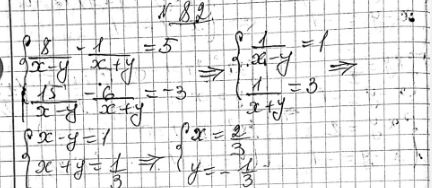 № 82
{ 8/(x-y) - 1/(x+y) = 5
{ 15/(x-y) - 6/(x+y) = -3
⇒ { 1/(x-y) = 1
{ 1/(x+y) = 3 ⇒
{ x-y = 1
{ x+y = 1/3
⇒ { x = 2/3
{ y = -1/3